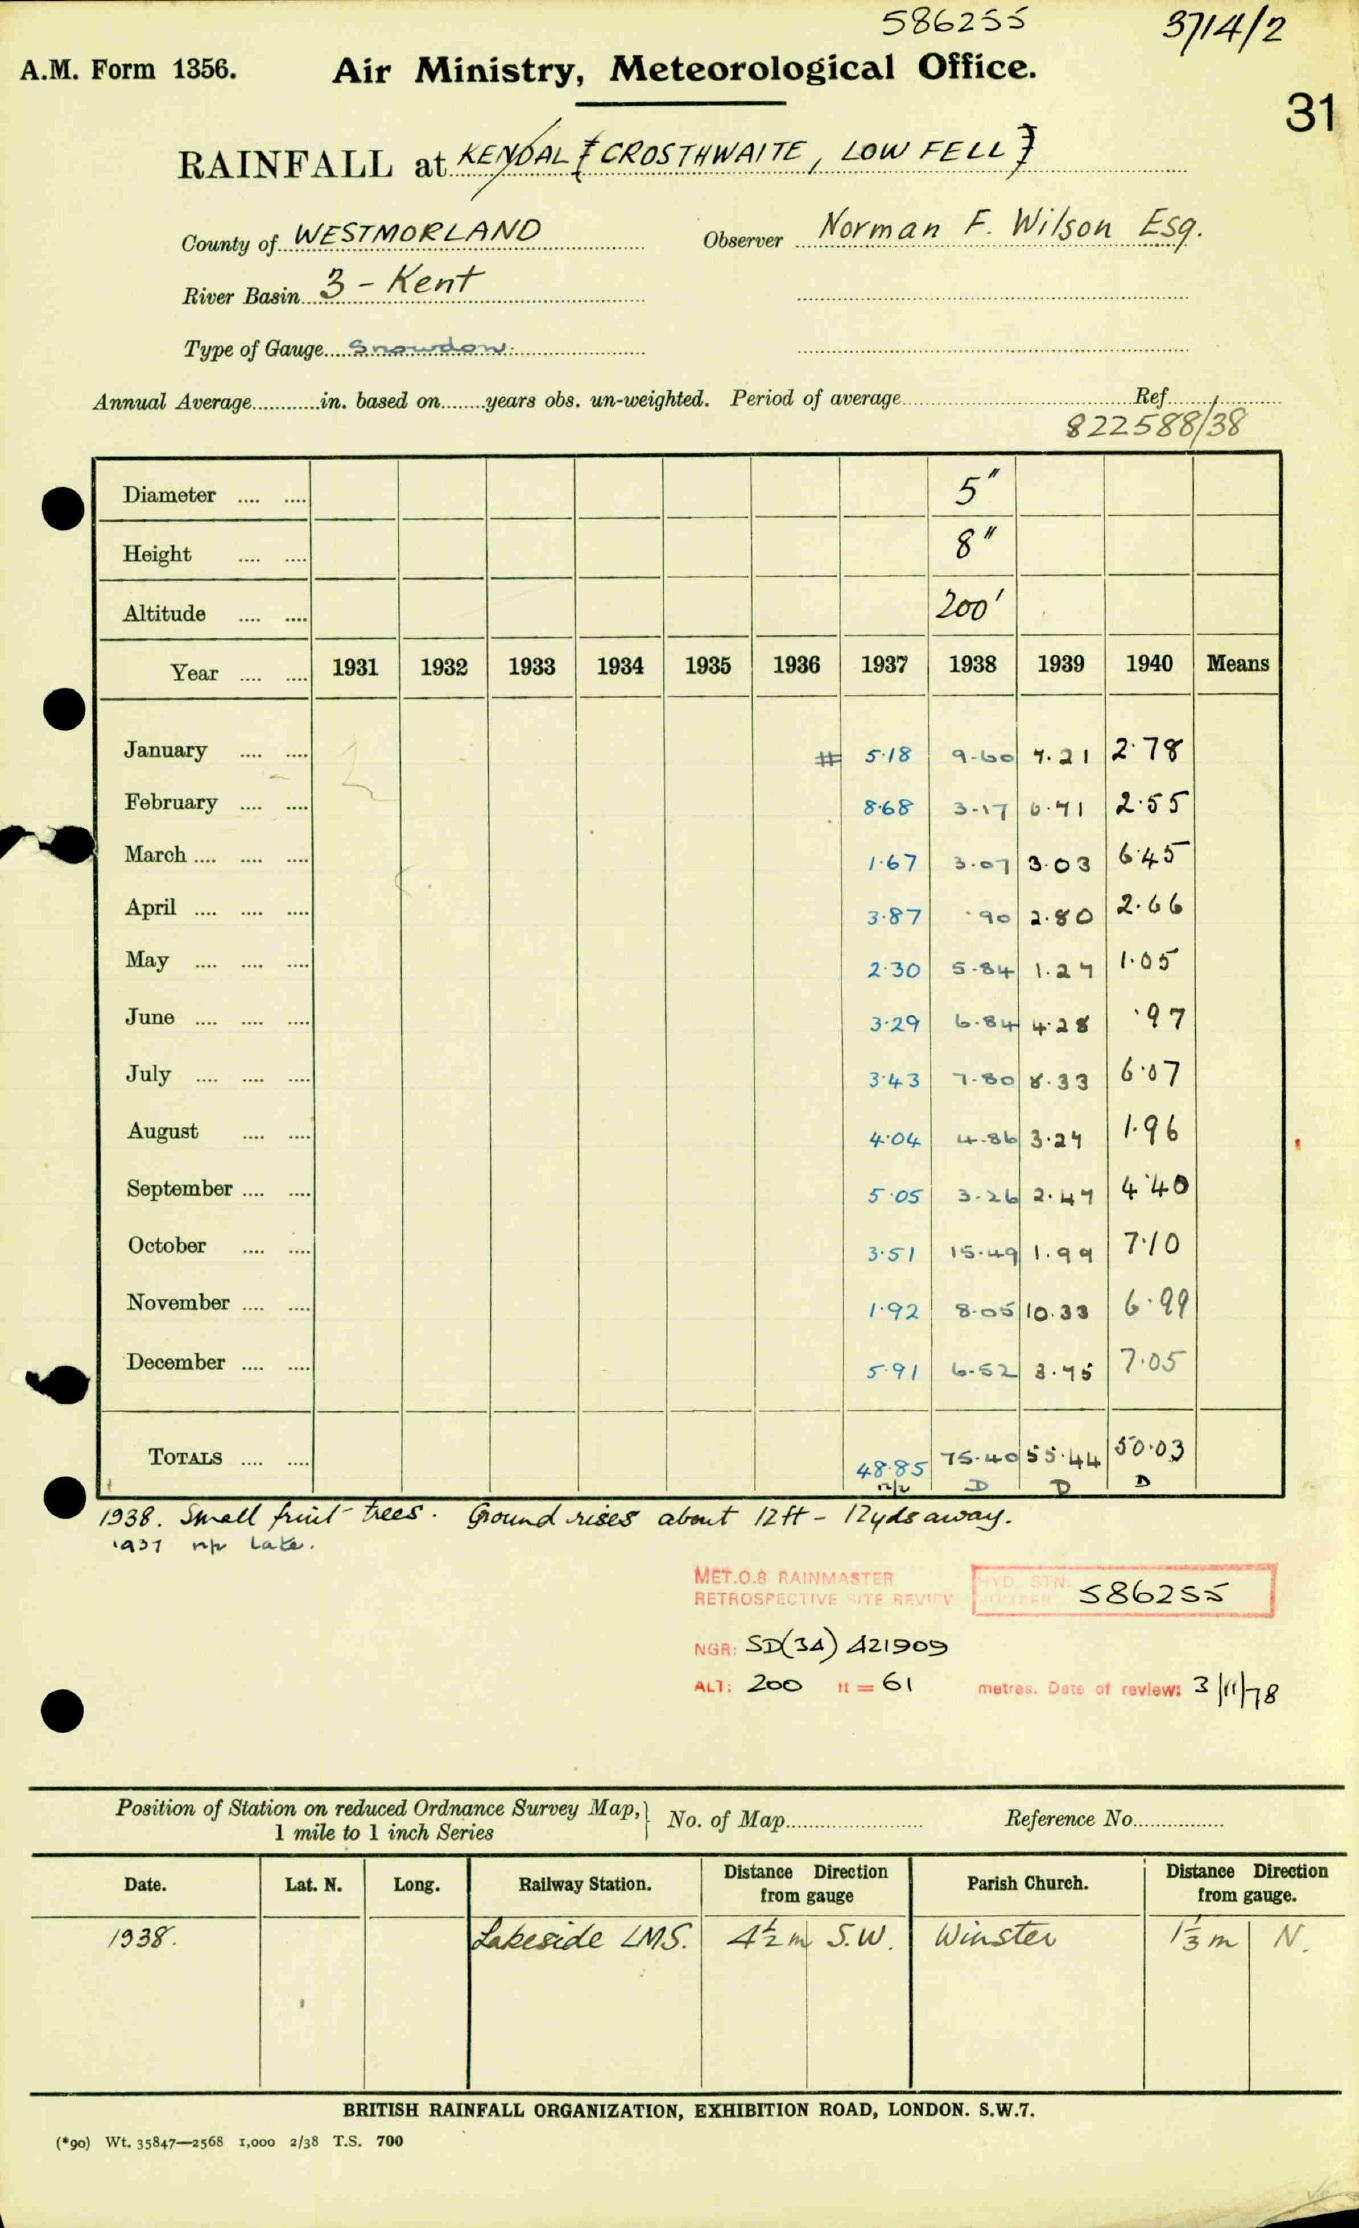 586255
3714/2
A.M. Form 1356. Air Ministry, Meteorological Office.
31
RAINFALL at KENDAL [CROSTHWAITE, LOW FELL]
County of WESTMORLAND Observer Norman F. Wilson Esq.
River Basin 3 - Kent
Type of Gauge Snowdon.
Annual Average............in. based on........years obs. un-weighted. Period of average........ Ref........
822588/38
Diameter .... .... 5"
Height .... .... 8"
Altitude .... .... 200'
Year .... .... 1931 1932 1933 1934 1935 1936 1937 1938 1939 1940 Means
January .... .... # 5.18 9.60 7.21 2.78
February .... .... 8.68 3.17 6.71 2.55
March .... .... .... 1.67 3.07 3.03 6.45
April .... .... .... 3.87 .90 2.80 2.66
May .... .... .... 2.30 5.84 1.27 1.05
June .... .... .... 3.29 6.84 4.28 .97
July .... .... .... 3.43 7.80 8.33 6.07
August .... .... 4.04 4.86 3.27 1.96
September .... .... 5.05 3.26 2.47 4.40
October .... .... 3.51 15.49 1.99 7.10
November .... .... 1.92 8.05 10.33 6.99
December .... .... 5.91 6.52 3.75 7.05
TOTALS .... .... 48.85 75.40 55.44 50.03
n/p D D D
1938. Small fruit trees. Ground rises about 12ft - 12yds away.
1937 n/p late.
MET.O.8 RAINMASTER
RETROSPECTIVE SITE REVIEW
HYD. STN. NUMBER 586255
NGR: SD(34) 421909
ALT: 200 ft = 61 metres. Date of review: 3/11/78
Position of Station on reduced Ordnance Survey Map, 1 mile to 1 inch Series } No. of Map........ Reference No........
Date. Lat. N. Long. Railway Station. Distance Direction from gauge Parish Church. Distance Direction from gauge.
1938. Lakeside LMS. 4½ m S.W. Winster 1⅓ m N.
BRITISH RAINFALL ORGANIZATION, EXHIBITION ROAD, LONDON. S.W.7.
(*90) Wt. 35847—2568 1,000 2/38 T.S. 700